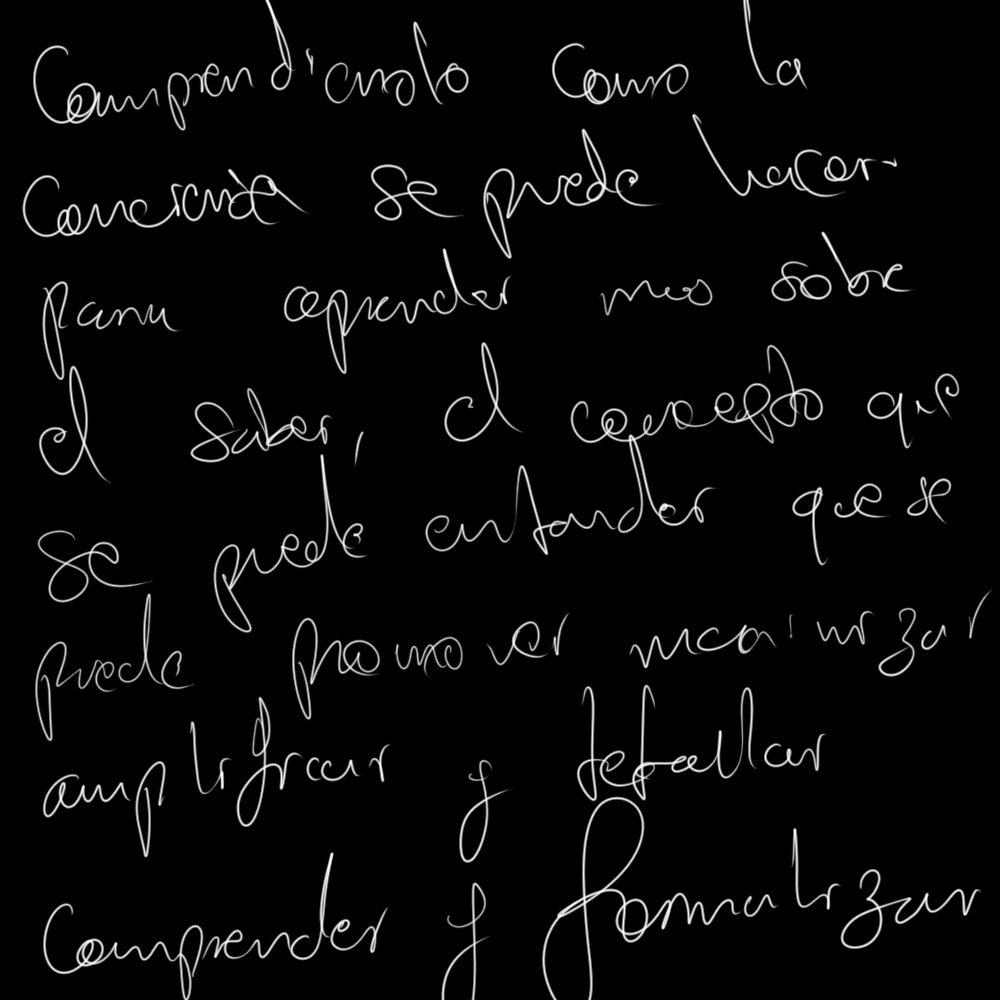 Comprendiendo como la
conciencia se puede hacer
para aprender mas sobre
el saber, el concepto que
se puede entender que se
puede promover maximizar
amplificar y detallar
Comprender y formalizar